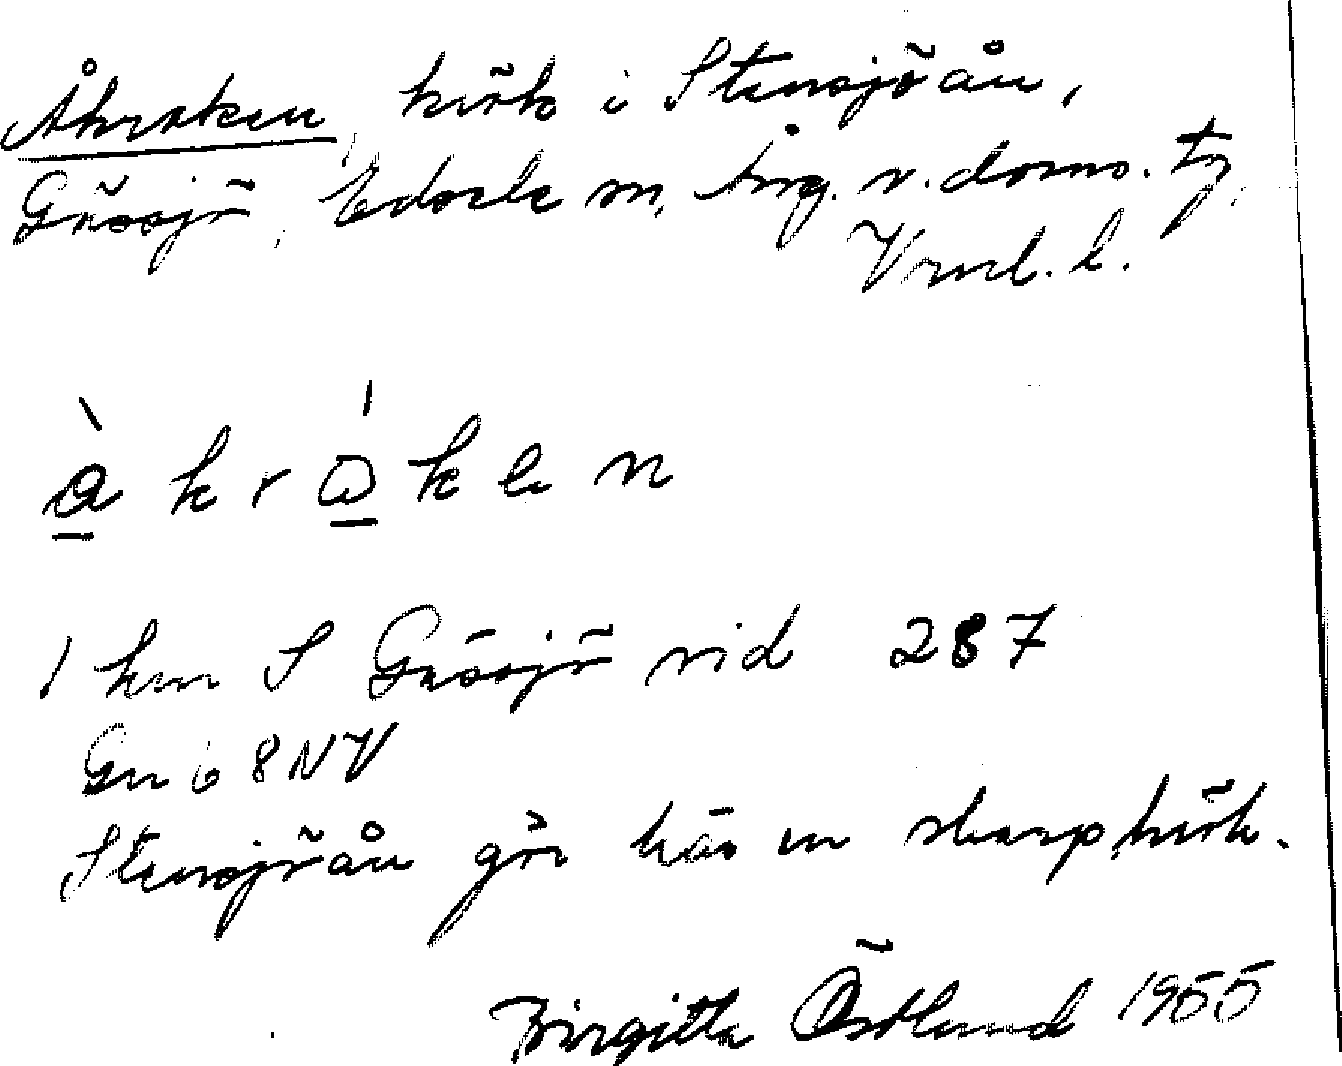 Åkroken, krök i Stensjöån,
Gåssjö, Edsele sn, Ång. v. doms. tg,
Vnrl. l.
åkroken
1 km S Gåssjö vid 287
Gn 68 NV
Stensjöån gör här en skarp krök.
Birgitta Östlund 1955